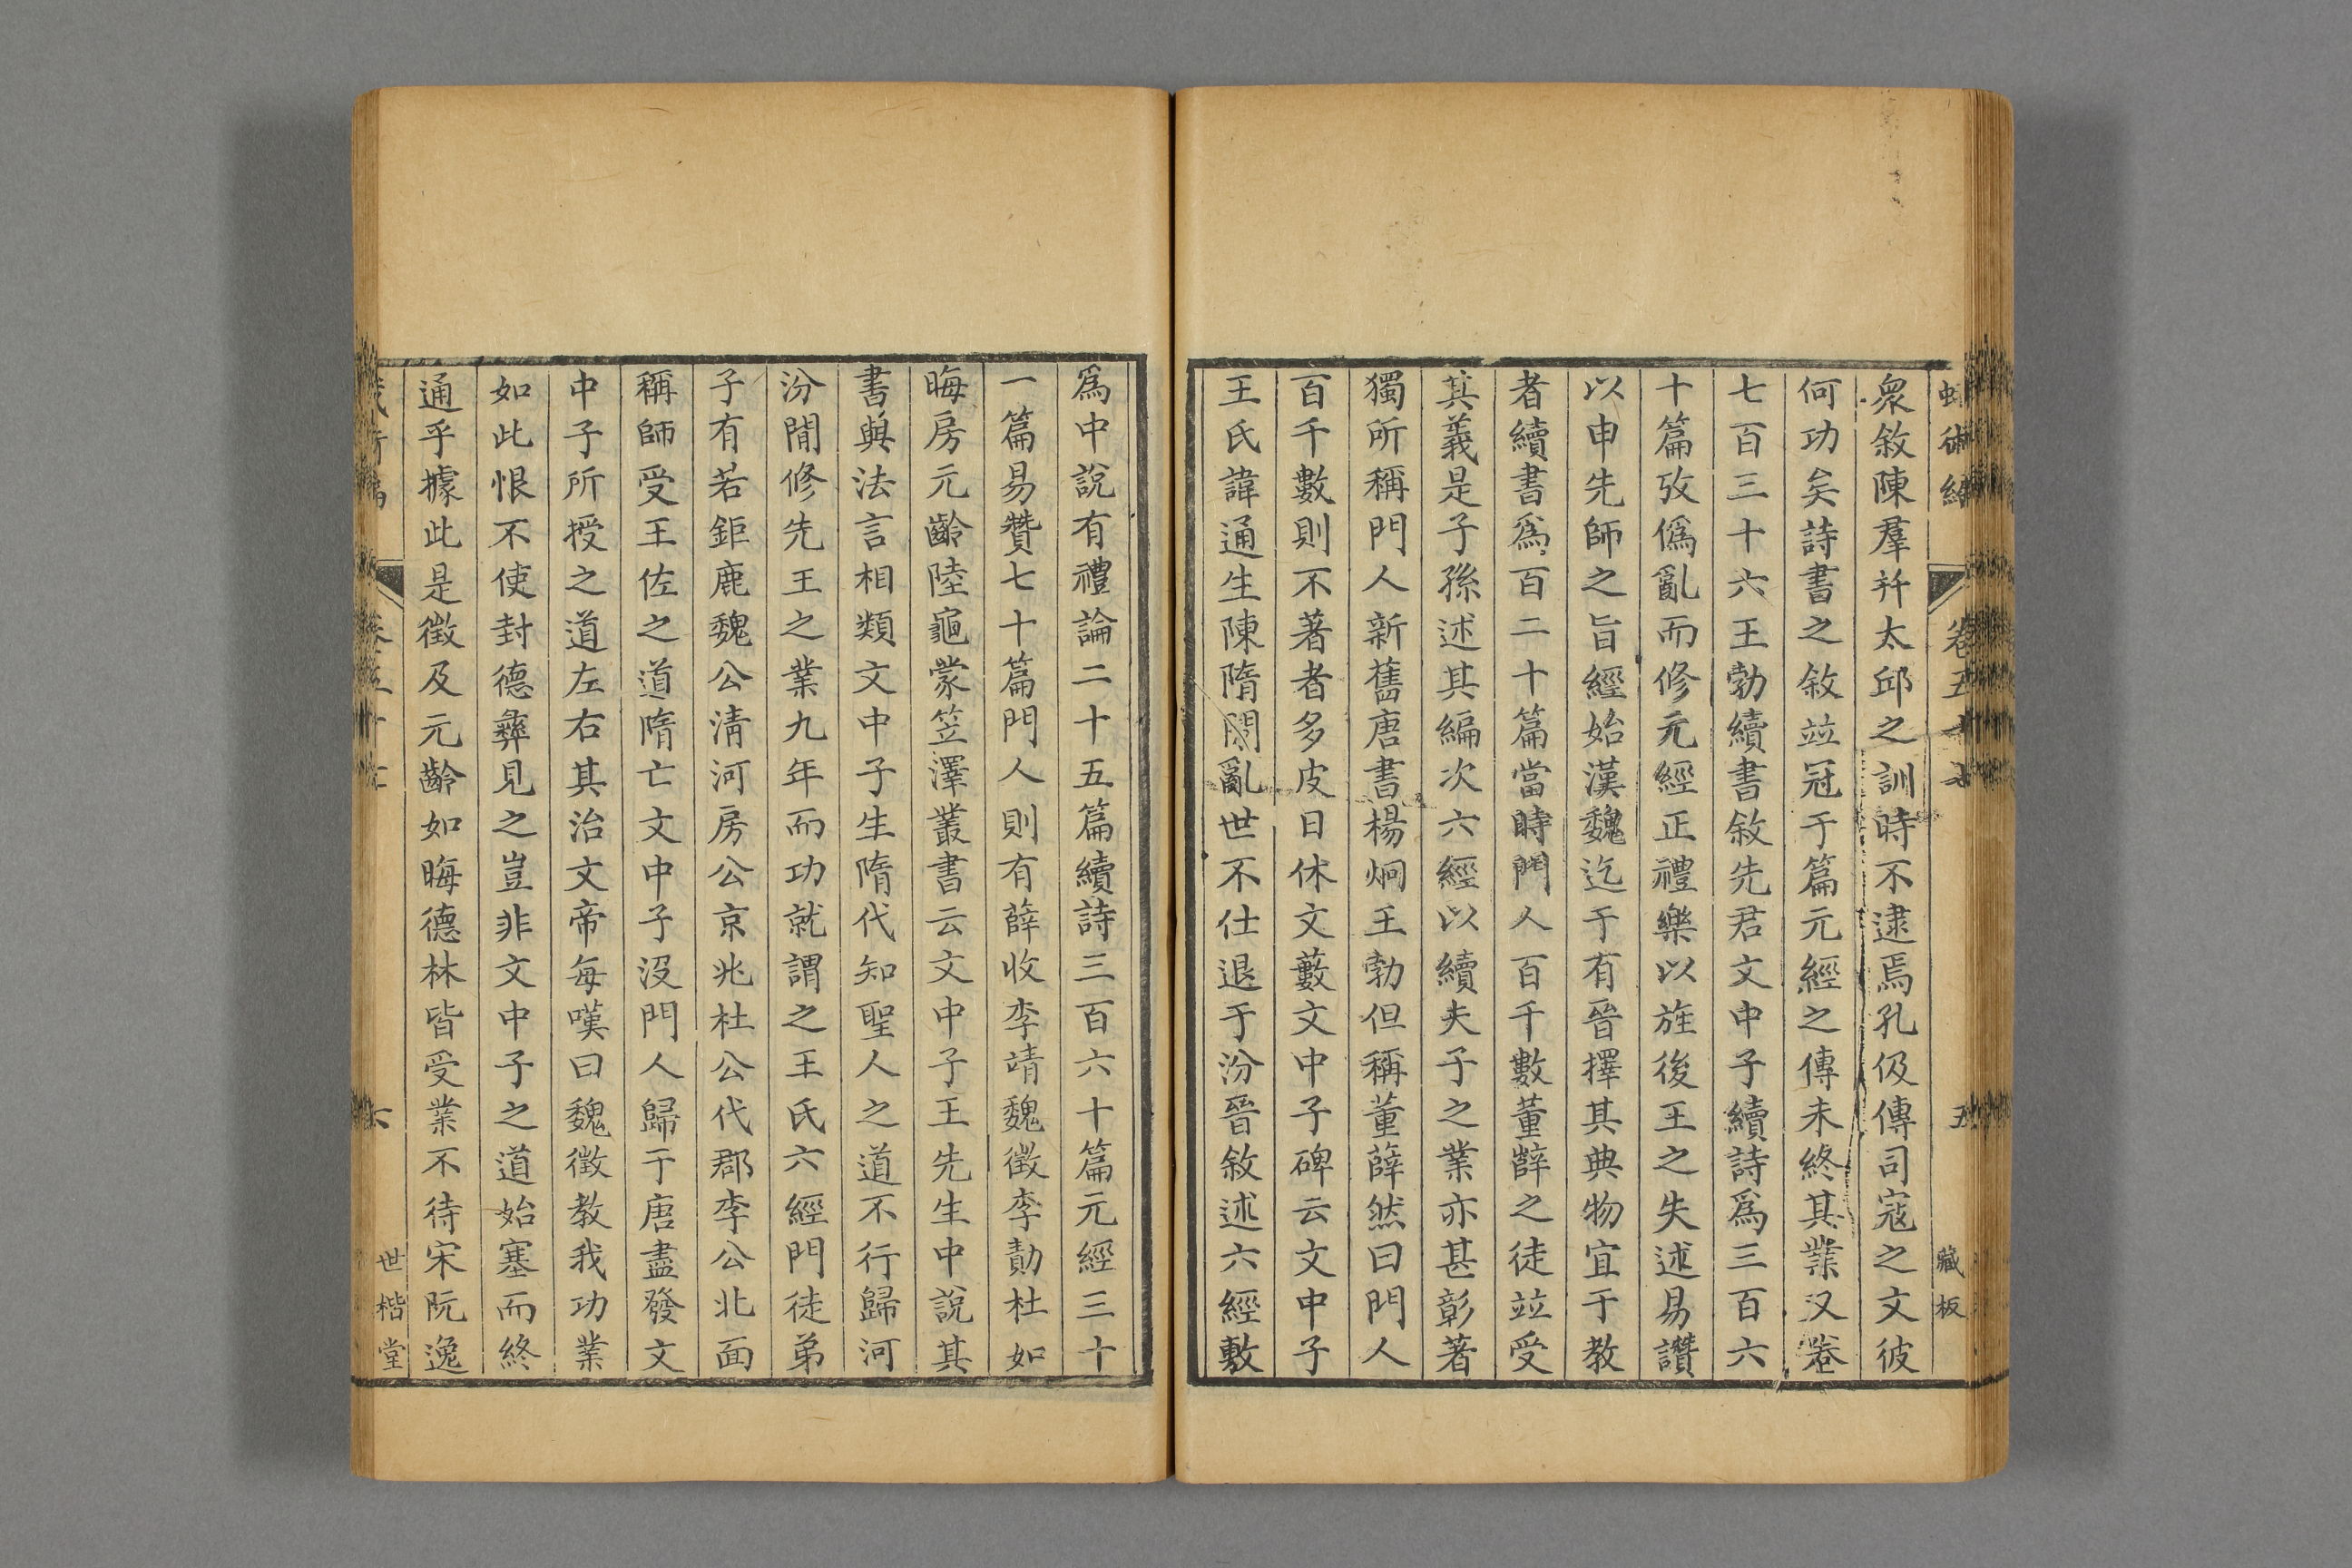 卷五十七
五
藏板
衆敘陳羣幷太邱之訓時不逮焉孔伋傳司寇之文彼
何功矣詩書之敘竝冠于篇元經之傳未終其業又卷
七百三十六王勃續書敘先君文中子續詩爲三百六
十篇攷僞亂而修元經正禮樂以旌後王之失述易讚
以申先師之旨經始漢魏迄于有晉擇其典物宜于教
者續書爲百二十篇當時門人百千數董薛之徒竝受
其義是子孫述其編次六經以續夫子之業亦甚彰著
獨所稱門人新舊唐書楊炯王勃但稱董薛然曰門人
百千數則不著者多皮日休文藪文中子碑云文中子
王氏諱通生陳隋閒亂世不仕退于汾晉敘述六經敷
爲中說有禮論二十五篇續詩三百六十篇元經三十
一篇易贊七十篇門人則有薛收李靖魏徵李勣杜如
晦房元齡陸龜蒙笠澤叢書云文中子王先生中說其
書與法言相類文中子生隋代知聖人之道不行歸河
汾閒修先王之業九年而功就謂之王氏六經門徒弟
子有若鉅鹿魏公淸河房公京兆杜公代郡李公北面
稱師受王佐之道隋亡文中子沒門人歸于唐盡發文
中子所授之道左右其治文帝每嘆曰魏徵教我功業
如此恨不使封德彝見之豈非文中子之道始塞而終
通乎據此是徵及元齡如晦德林皆受業不待宋阮逸
卷五十七
六
世楷堂